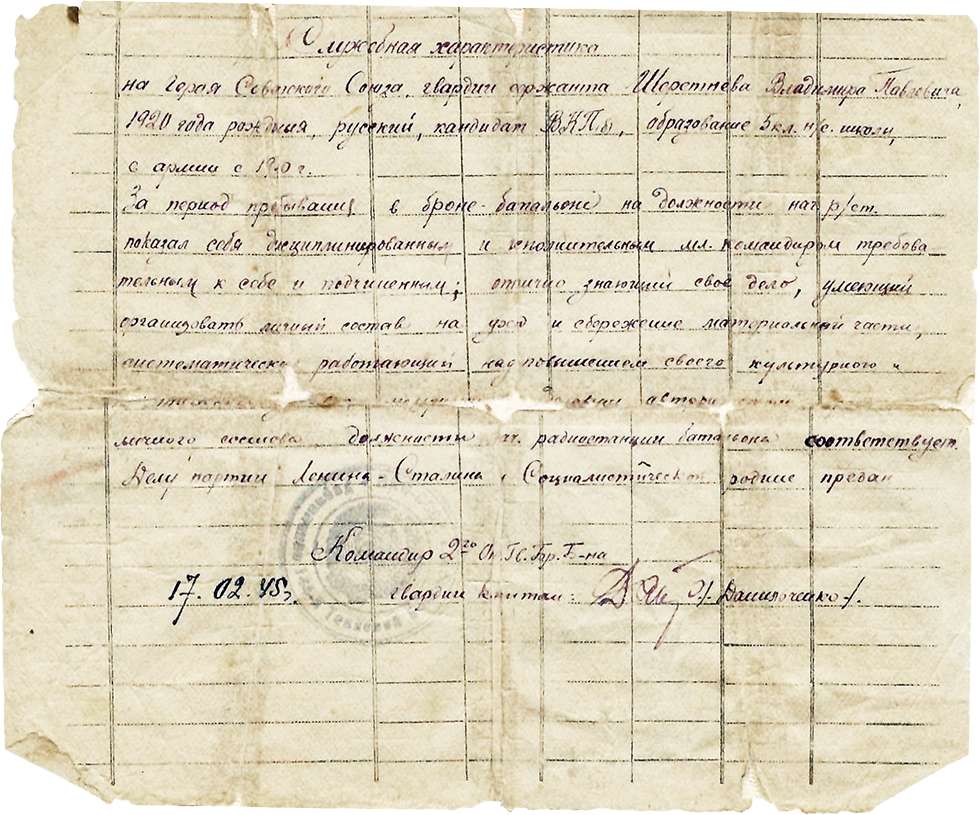 Служебная характеристика
на героя Советского Союза, гвардии сержанта Шерстнева Владимира Павловича,
1920 года рождния, русский, кандидат ВКПб, образование 5 кл. н/с. школы,
в армии с 19 0 г.
За период пребывания в броне-батальоне на должности нач. р/ст.
показал себя дисциплинированным и исполнительным мл. командиром требова
тельным к себе и подчиненным; отлично знающий свое дело, умеющий
организовать личный состав на уход и сбережение материальной части,
систематически работающий над повышением своего культурного и
автори
личного состава должности нач. радиостанции батальона соответствует.
Делу партии Ленина-Сталина и Социалистической родине предан
Командир 2го От. Гв. Бр. Б-на
17.02.45г. гвардии капитан: /-Данилоченко-/.